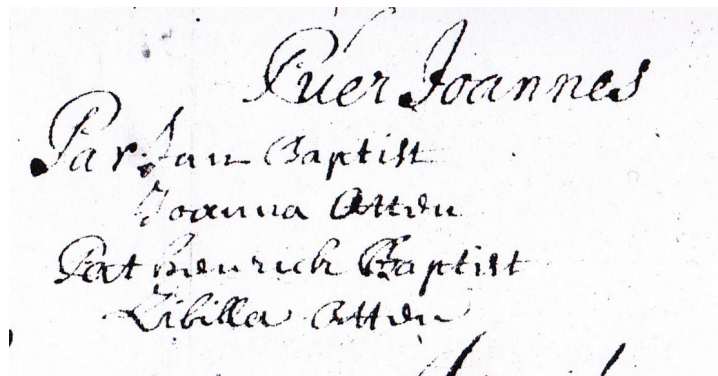 Puer Joannes
Par. Jan Baptist
Joanna Otten
Pat henrich Baptist
Zibilla Otten